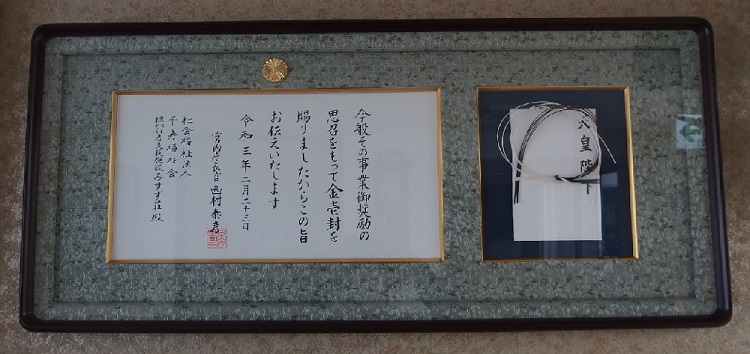 天皇陛下
今般その事業御奨励の
思召をもって金壱封を
賜りましたからこの旨
お伝えいたします
令和三年二月二十三日
宮内庁長官 西村泰彦
社会福祉法人
千寿福祉会
みすず荘 殿